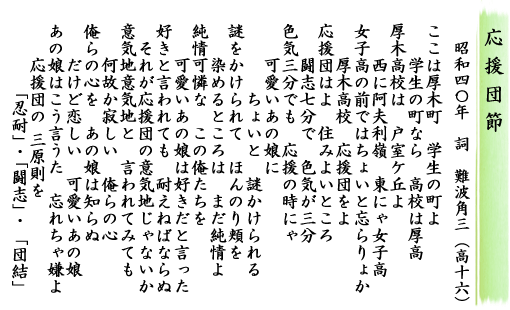 応援団節
昭和四〇年　詞　難波角三（高十六）
ここは厚木町　学生の町よ
学生の町なら　高校は厚高
厚木高校は　戸室ケ丘よ
西に阿夫利嶺　東にゃ女子高
女子高の前ではちょいと忘らりょか
厚木高校　応援団をよ
応援団はよ　住みよいところ
闘志七分で　色気が三分
色気三分でも　応援の時にゃ
可愛いあの娘に
ちょいと　謎かけられる
謎をかけられて　ほんのり頬を
染めるところは　まだ純情よ
純情可憐な　この俺たちを
可愛いあの娘は好きだと言った
好きと言われても　耐えねばならぬ
それが応援団の意気地じゃないか
意気地意気地と　言われてみても
何故か寂しい　俺らの心
俺らの心を　あの娘は知らぬ
だけど恋しい　可愛いあの娘
あの娘はこう言うた　忘れちゃ嫌よ
応援団の　三原則を
「忍耐」・「闘志」・「団結」